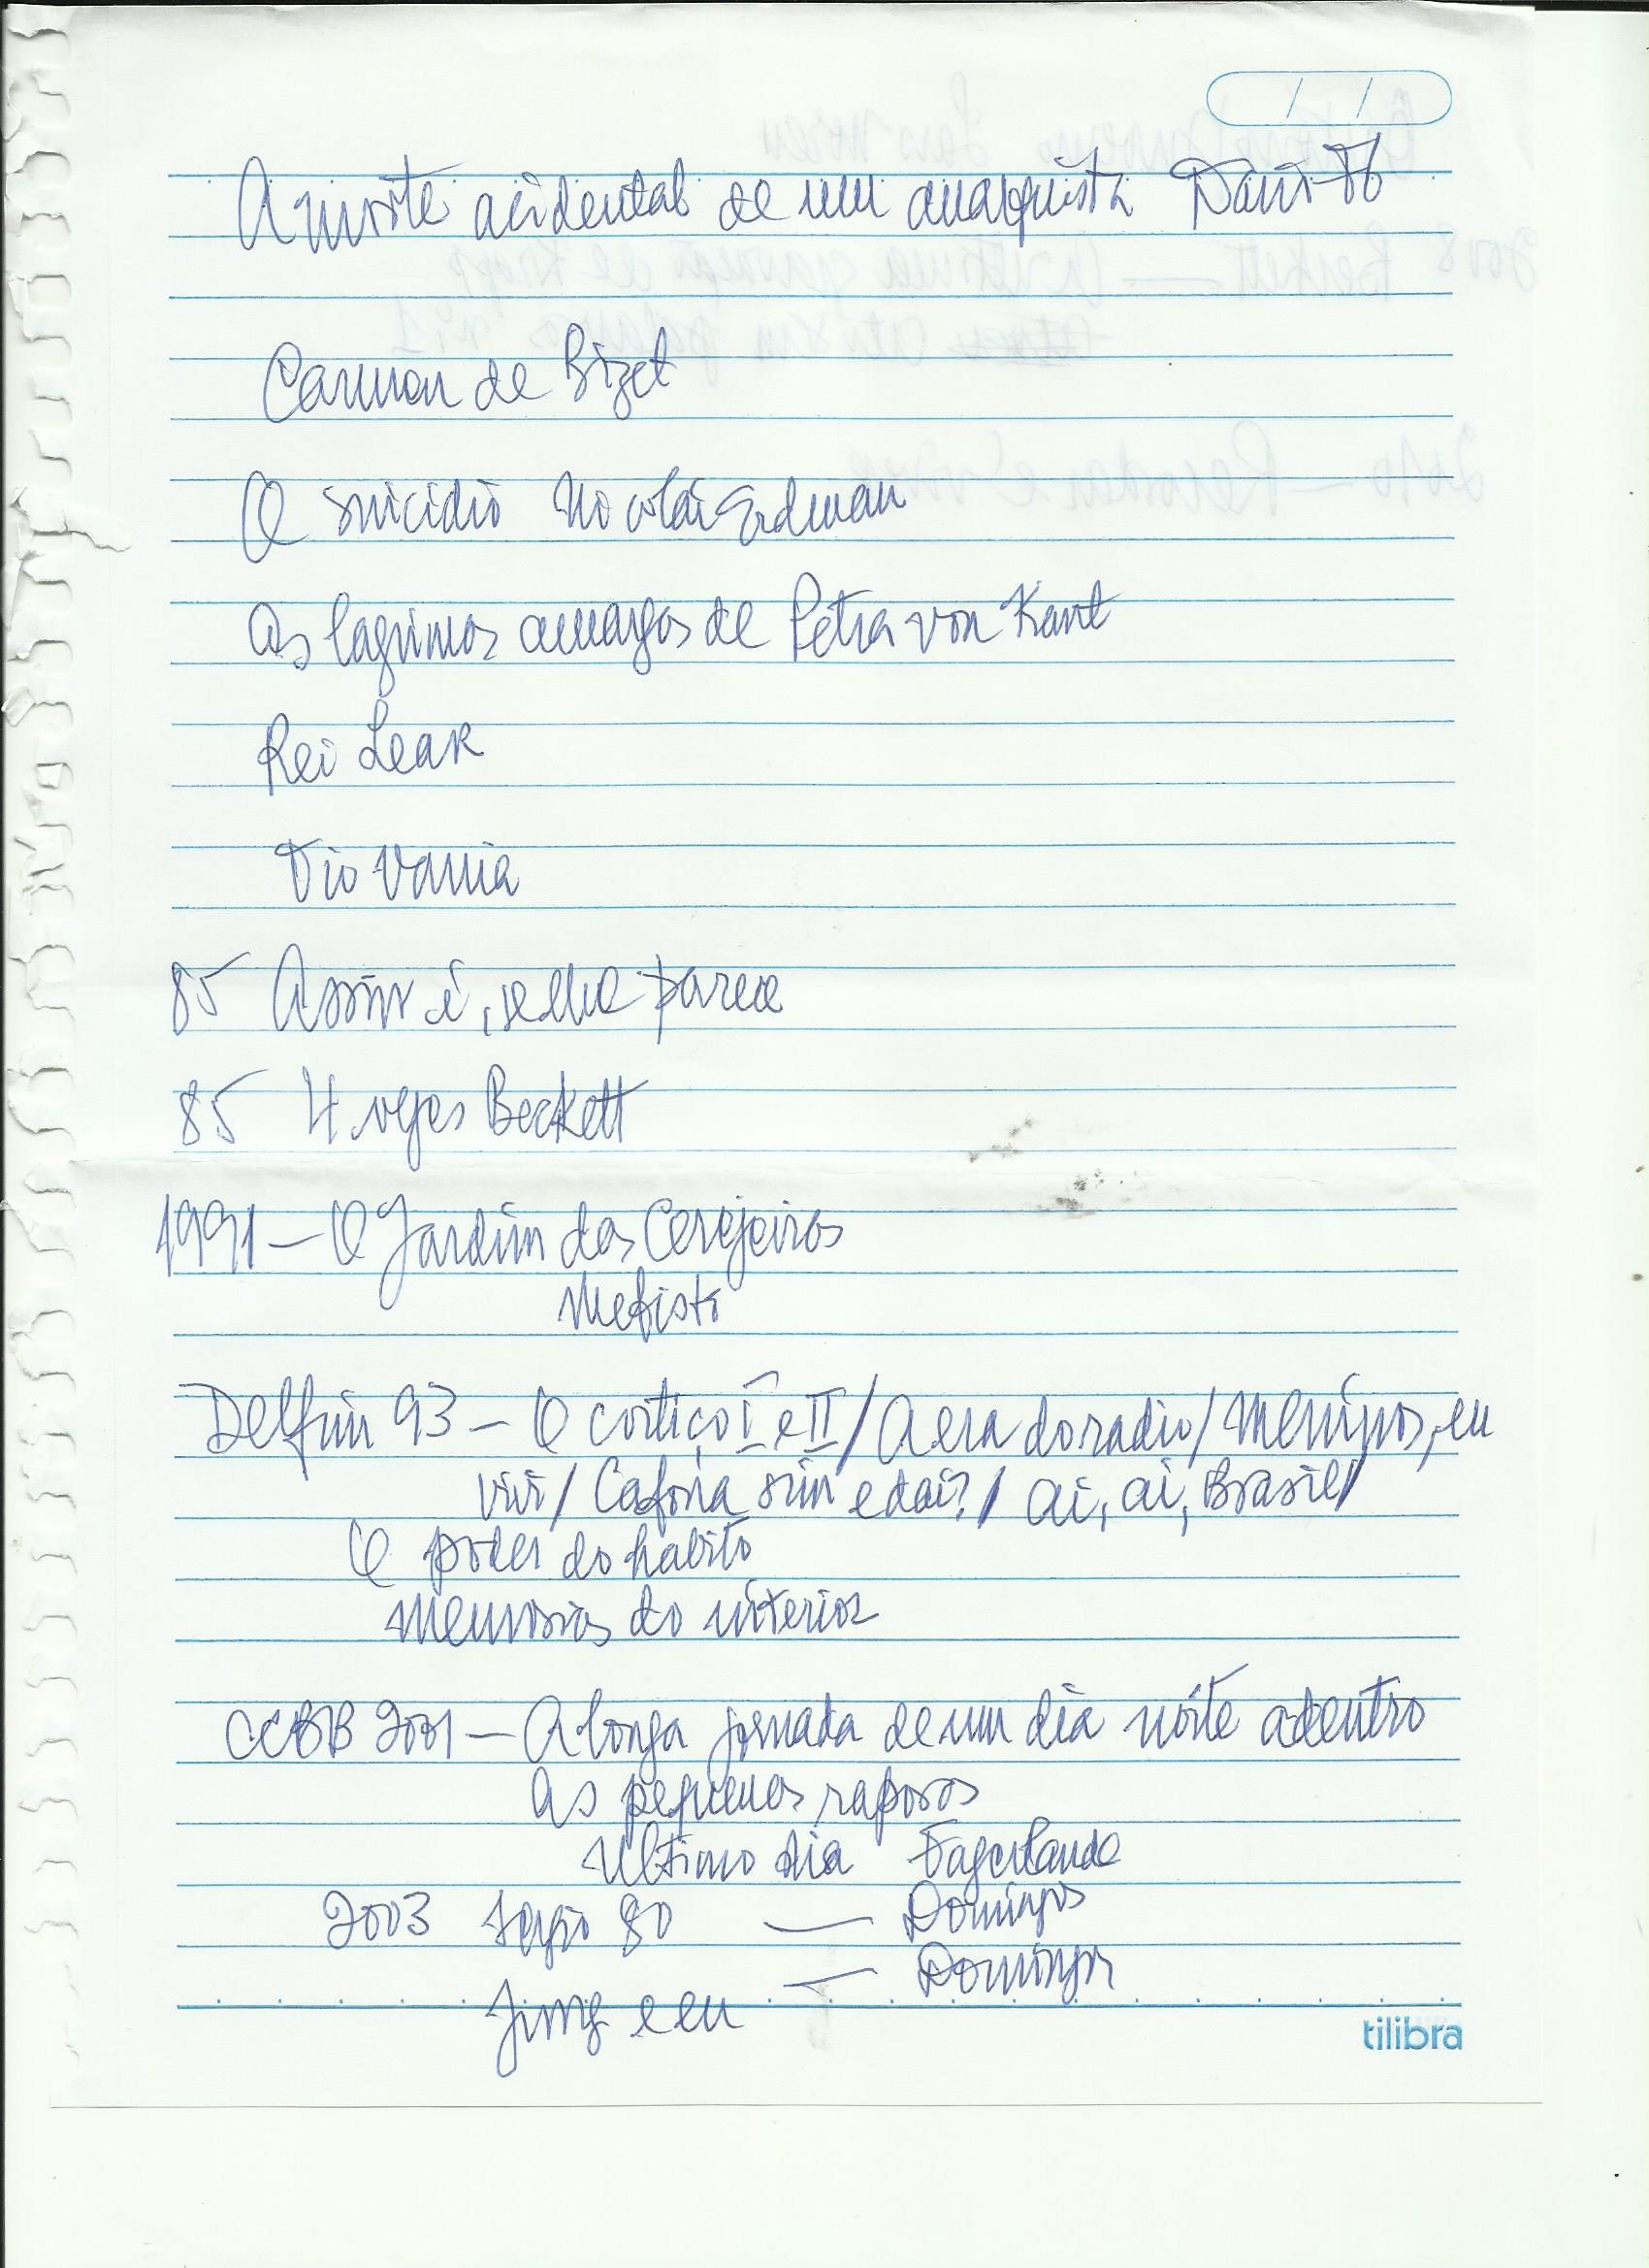 A morte acidental de um anarquista Dario Fo
Carmen de Bizet
O suicidio Nicolai Erdman
As lagrimas amargas de Petra von Kant
Rei Lear
Tio Vania
85 Assim é, se lhe parece
85 4 vezes Beckett
1991 – O Jardim das Cerejeiras
Mefisto
Delfim 93 – O cortiço I e II / A era do radio / Meninos, eu
vivi / Cafona sim e daí? / Ai, ai, Brasil /
O poder do habito
Memorias do interior
CCBB 2001 – A longa jornada de um dia noite adentro
As pequenas raposas
Ultimo dia Fagerlande
2003 Sergio 80 — Domingos
Jung e eu — Domingos
tilibra